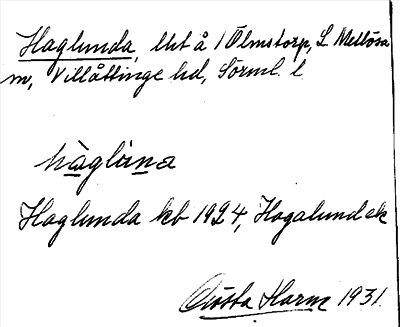 Haglunda, lht å 1 Ölmstorp, L Mellösa
sn, Villåttinge hd, Sörml. l
hàglúna
Haglunda kb 1924, Hagalund ek
Gösta Harm 1931.